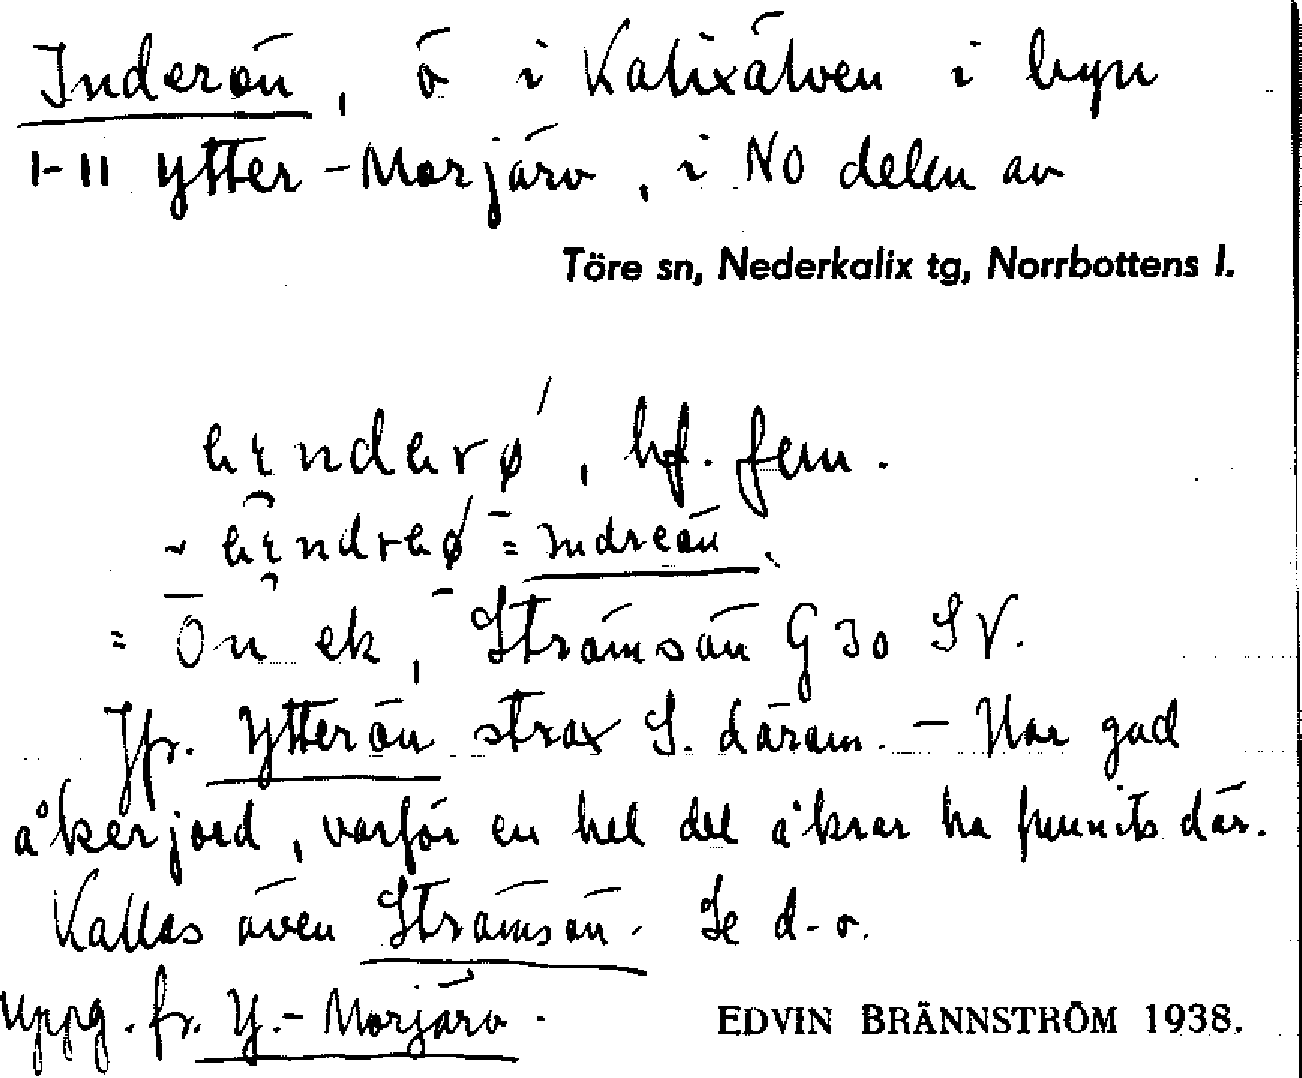 Inderön, ö i Kalixälven i byn
1-11 Ytter-Morjärv, i NO delen av
Töre sn, Nederkalix tg, Norrbottens l.
, bf. fem.
~ = Indreön.
= Ön ek, Strömsön G 30 SV.
Jfr. Ytterön strax S. därom. — Har god
åkerjord, varför en hel del åkrar ha funnits där.
Kallas även Strömsön. Se d. o.
Uppg. fr. Y.-Morjärv.
EDVIN BRÄNNSTRÖM 1938.